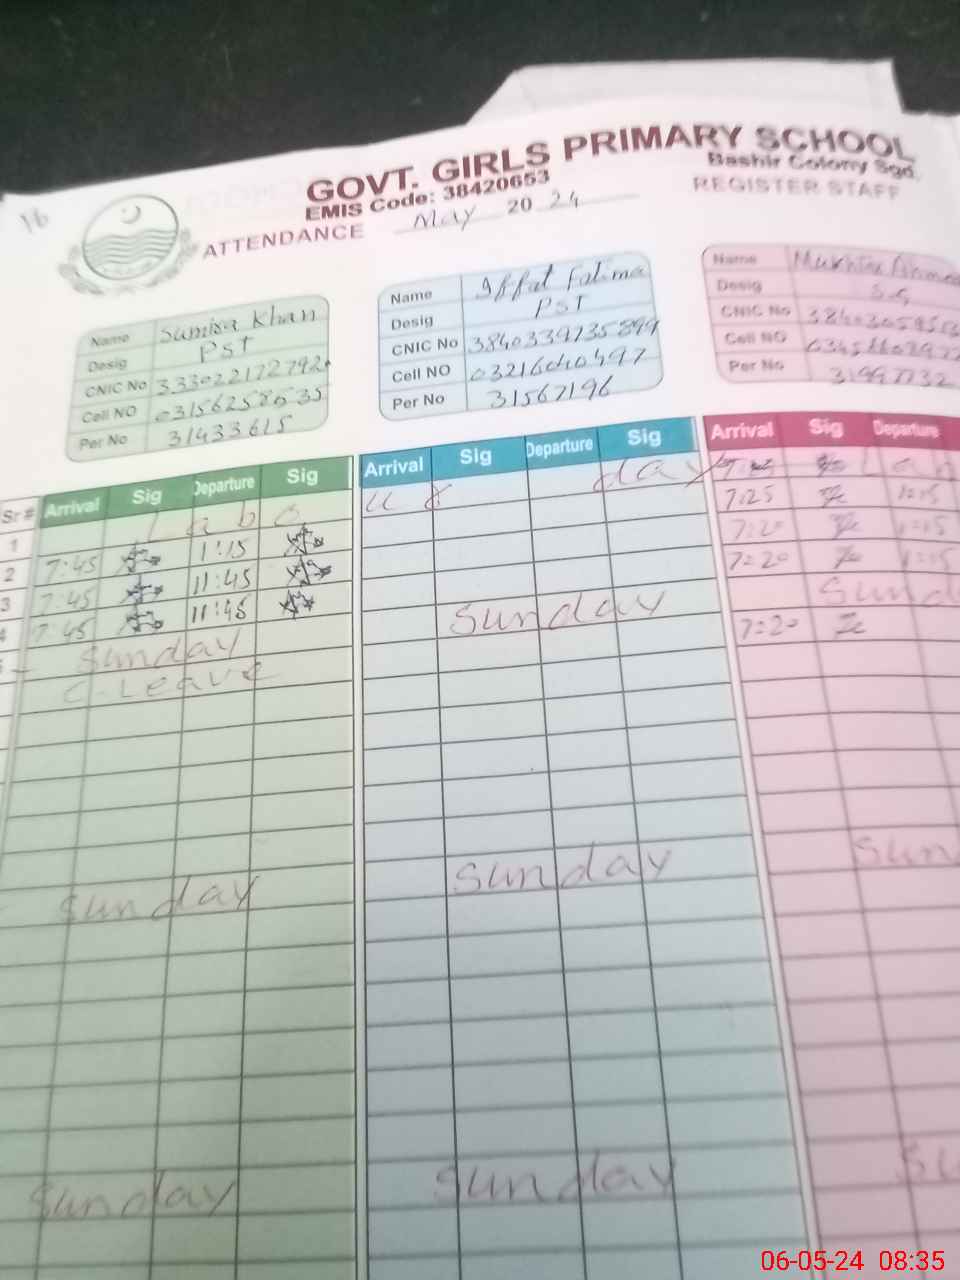 16
GOVT. GIRLS PRIMARY SCHOOL
EMIS Code: 38420653
Bashir Colony Sgd.
ATTENDANCE May 2024 REGISTER STAFF
Name Sumira Khan
Desig PST
CNIC No
Cell NO 03156258535
Per No 31433615
Name Iffat Fatima
Desig PST
CNIC No 3840339735899
Cell NO 03216040497
Per No 31567196
Name Mukhtar Ahmed
Desig
CNIC No
Cell NO
Per No 31997732
Sr # Arrival Sig Departure Sig
1 Labo
2 7:45 1:15
3 7:45 11:45
4 7:45 11:45
5 Sunday
C-Leave
Sunday
Sunday
Arrival Sig Departure Sig
ur day
Sunday
Sunday
Sunday
Arrival Sig Departure
Lab
7:25 1:15
7:20 1:15
7:20 1:15
Sund
7:20
Sun
Su
06-05-24 08:35